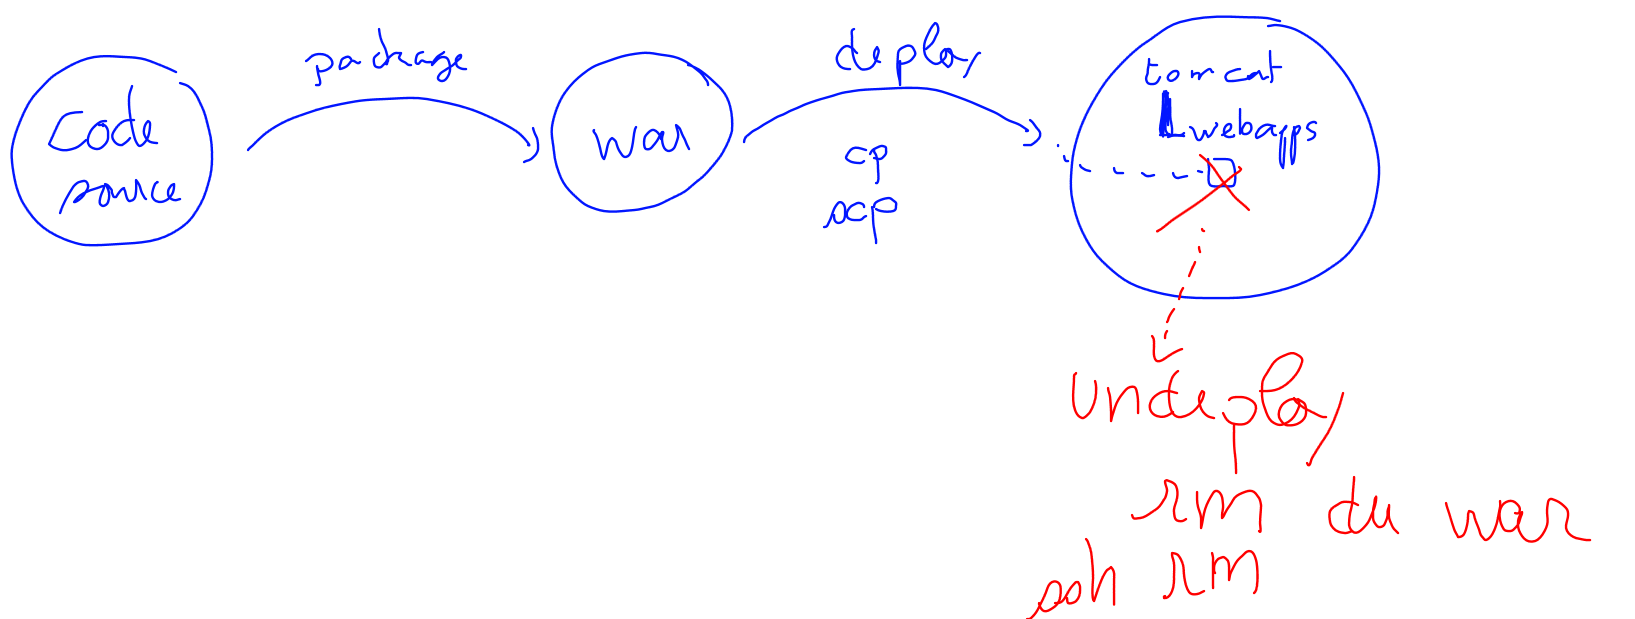 code
source
package
war
deploy
cp
scp
tomcat
webapps
undeploy
rm du war
ssh rm